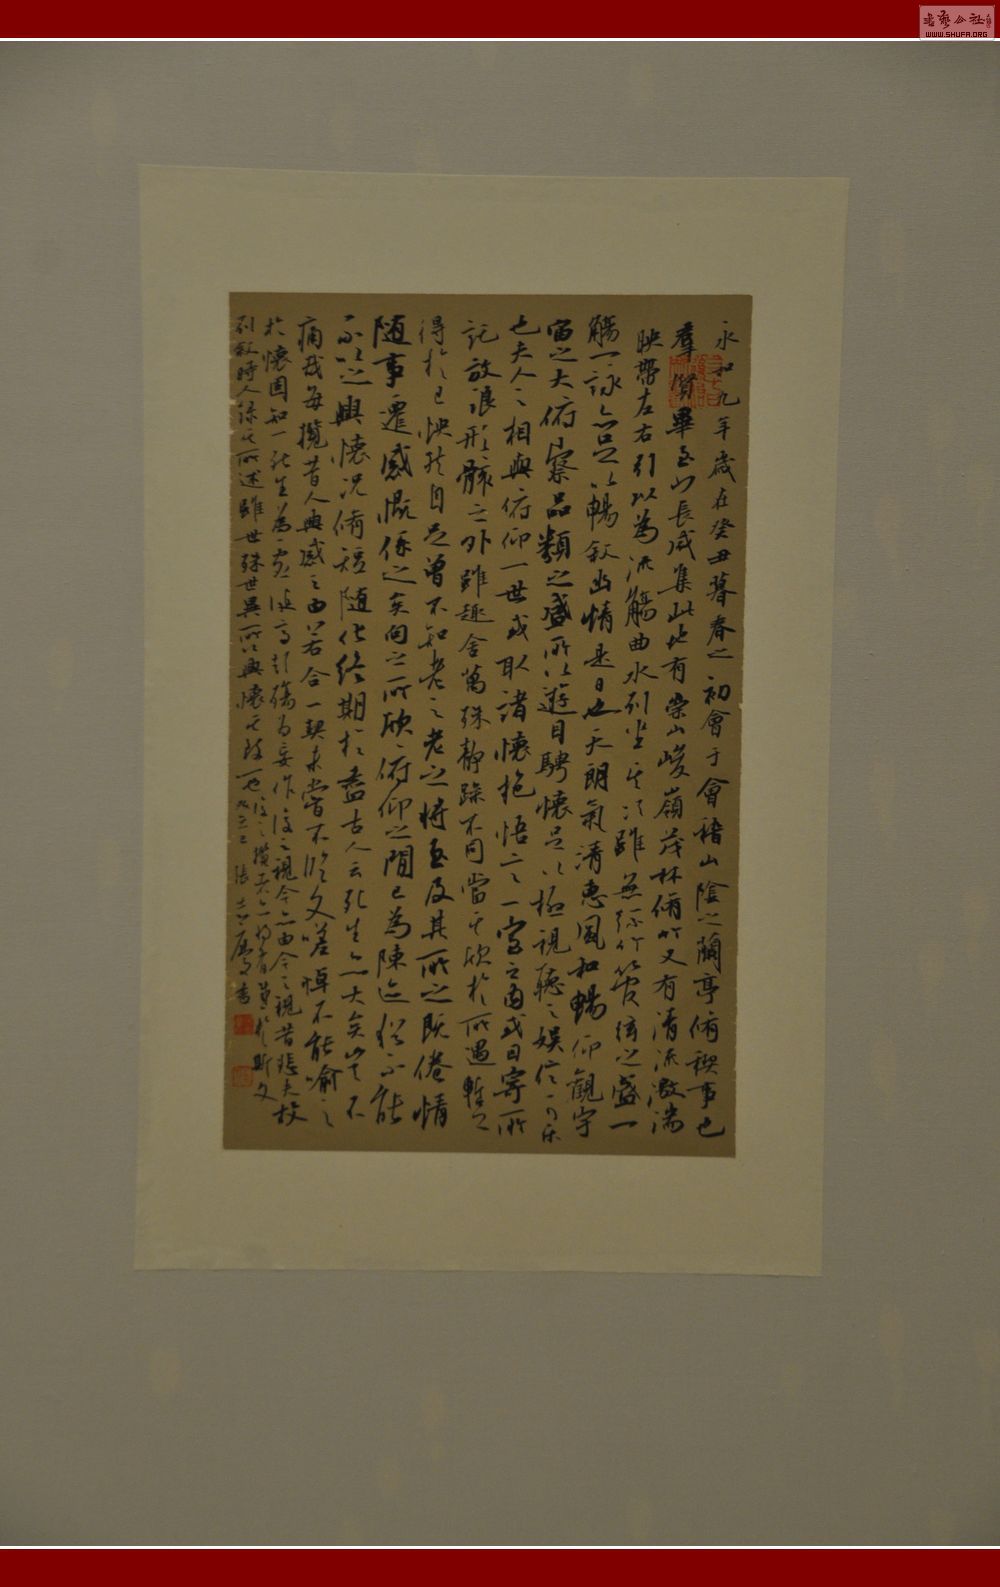 永和九年歲在癸丑暮春之初會于會稽山陰之蘭亭脩稧事也
羣賢畢至少長咸集此地有崇山峻嶺茂林脩竹又有清流激湍
映帶左右引以為流觴曲水列坐其次雖無絲竹管絃之盛一
觴一詠亦足以暢敘幽情是日也天朗氣清惠風和暢仰觀宇
宙之大俯察品類之盛所以遊目騁懷足以極視聽之娛信可樂
也夫人之相與俯仰一世或取諸懷抱悟言一室之內或因寄所
託放浪形骸之外雖趣舍萬殊靜躁不同當其欣於所遇暫
得於己怏然自足曾不知老之老之將至及其所之既倦情
隨事遷感慨係之矣向之所欣俯仰之間已為陳迹猶不能
不以之興懷況脩短隨化終期於盡古人云死生亦大矣豈不
痛哉每攬昔人興感之由若合一契未嘗不臨文嗟悼不能喻之
於懷固知一死生為虛誕齊彭殤為妄作後之視今亦由今之視昔悲夫故
列敘時人錄其所述雖世殊世異所以興懷其致一也後之攬者亦將有感於斯文
張志鷹書
書藝公社
WWW.SHUFA.ORG